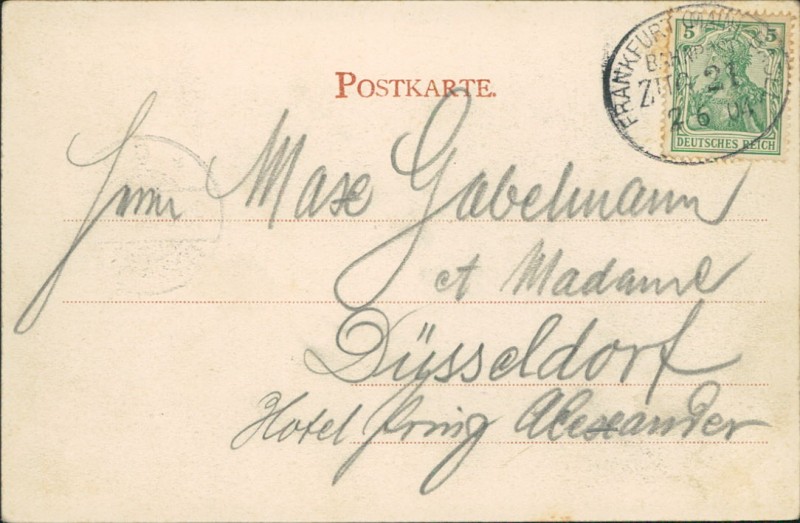 POSTKARTE.
FRANKFURT (MAIN)
BAHNPOST
ZUG 21
2 6 04
5 5
DEUTSCHES REICH
Herrn Max Gabelmann
et Madame
Düsseldorf
Hotel Prinz Alexander